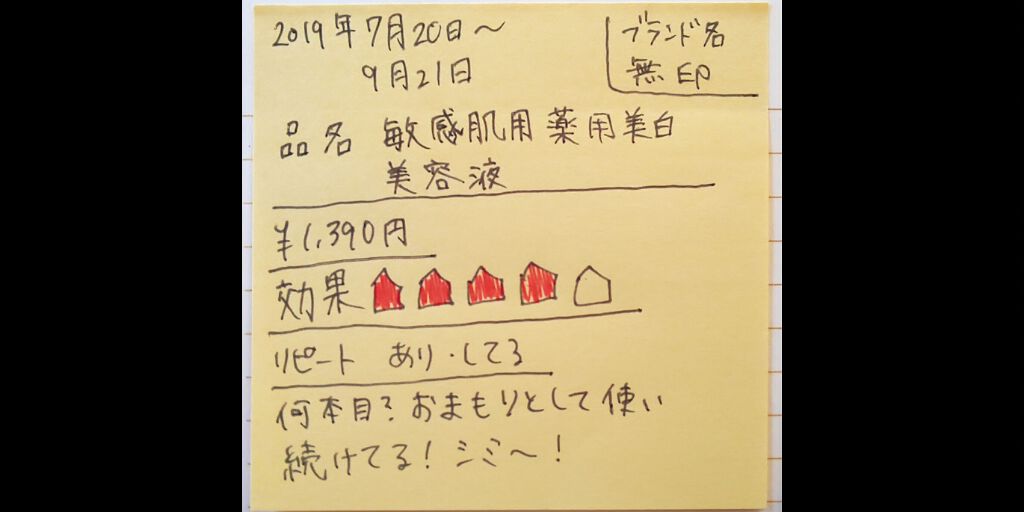 2019年7月20日～
9月21日
ブランド名
無印
品名 敏感肌用薬用美白
美容液
¥1,390円
効果
リピート あり・してる
何本目?おまもりとして使い
続けてる!シミ～!